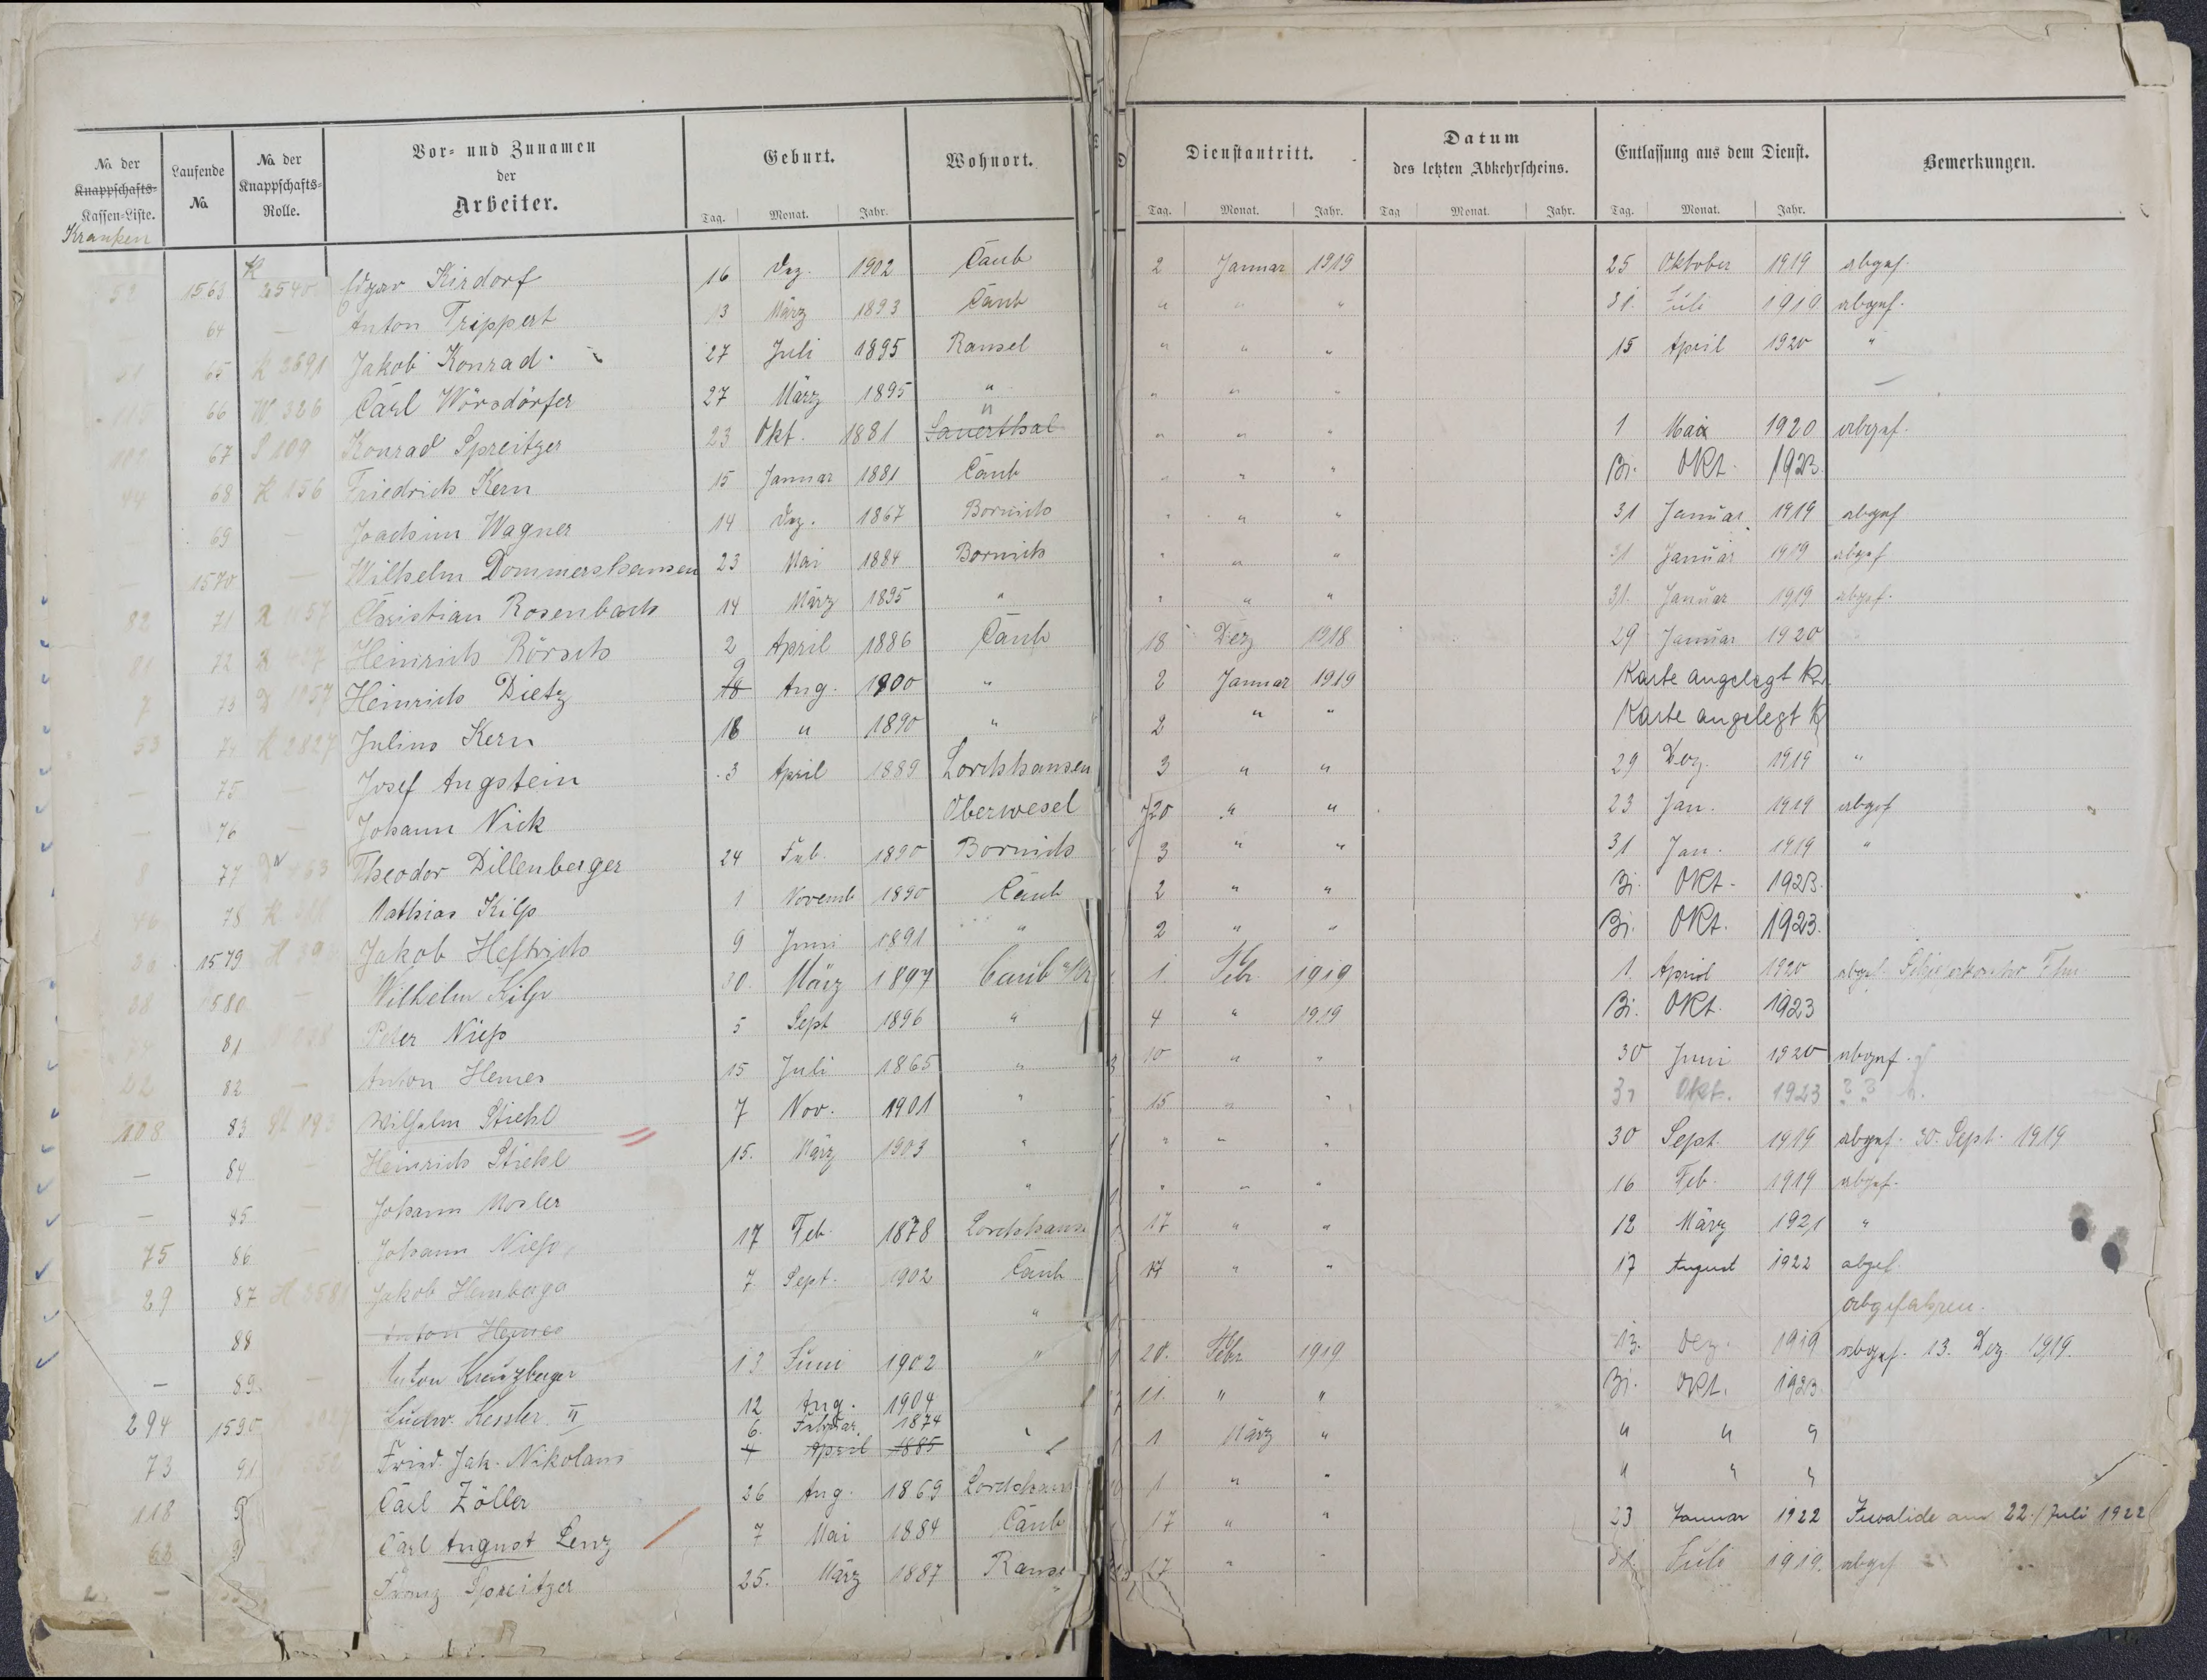 No. der Knappschafts-Kassen-Liste. Kranken | Laufende No. | No. der Knappschafts-Rolle. | Vor- und Zunamen der Arbeiter. | Geburt. Tag. Monat. Jahr. | Wohnort. | Dienstantritt. Tag. Monat. Jahr. | Datum des letzten Abkehrscheins. Tag Monat. Jahr. | Entlassung aus dem Dienst. Tag. Monat. Jahr. | Bemerkungen.
52 1563 K 2540 Edgar Kirdorf 16 Dez. 1902 Caub 2 Januar 1919 25 Oktober 1919 abgef.
64 — Anton Trippert 13 März 1893 Caub " " " 31. Juli 1919 abgef.
65 K 3691 Jakob Konrad 27 Juli 1895 Ransel " " " 15 April 1920 "
66 W 326 Carl Wörsdörfer 27 März 1895 " " " " —
67 S 109 Konrad Spreitzer 23 Okt. 1881 Sauerthal " " " " 1 Mai 1920 abgef.
44 68 K 156 Friedrich Kern 15 Januar 1881 Caub " " " 31. Okt. 1923.
69 — Joachim Wagner 14 Dez. 1867 Bornich " " " 31 Januar 1919 abgef
1570 — Wilhelm Dommershausen 23 Mai 1884 Bornich " " " 31 Januar 1919 abgef
82 71 R 1157 Christian Rosenbach 14 März 1895 " " " " 31. Januar 1919 abgef.
81 72 Heinrich Rörsch 2 April 1886 Caub 18 Dez 1918 29 Januar 1920
7 73 D 1057 Heinrich Dietz 18 9 Aug. 1900 " 2 Januar 1919 Karte angelegt
53 74 K 2827 Julius Kern 18 " 1890 " 2 " " Karte angelegt
— 75 — Josef Augstein 3 April 1889 Lorchhausen 3 " " 29 Dez. 1919 "
— 76 — Johann Nick Oberwesel 20 " " 23 Jan. 1919 abgef
8 77 Theodor Dillenberger 24 Feb. 1890 Bornich 3 " " 31 Jan. 1919 "
46 78 Mathias Kilp 1 Novemb 1890 Caub 2 " " 31. Okt. 1923.
1579 Jakob Heftrich 9 Juni 1891 " 2 " " 31. Okt. 1923.
38 1580 — Wilhelm Kilp 30. März 1897 Caub 1. Febr. 1919 1. April 1920 abgef.
81 Peter Nies 5 Sept 1896 " 4 " 1919 31. Okt. 1923
82 — Anton Hemes 15 Juli 1865 " 10 " " 30 Juni 1920 abgef.
108 83 Wilhelm Stiehl 7 Nov. 1901 " 15 " " 31 Okt. 1923
— 84 — Heinrich Stiehl 15. März 1903 " " " " 30 Sept. 1919 abgef. 30. Sept. 1919
— 85 — Johann Mosler " " " " 16 Feb. 1919 abgef.
75 86 — Johann Nies 17 Feb. 1878 Lorchhause 17 " " 12 März 1921 "
29 87 H 3581 Jakob Hemberga 7 Sept. 1902 Caub 17 " " 17 August 1922 abgef.
88 Anton Hemes " abgefahren.
— 89 — Anton Kreuzberger 13 Juni 1902 " 20. Febr 1919 13. Dez. 1919 abgef. 13. Dez 1919.
294 1590 Ludw. Kessler II 12 Aug. 1904 11. " " 31. Okt. 1923.
73 91 Fried. Jak. Nikolaus 6. Februar. 1874 4 April 1885 " 1 März " " " "
118 Carl Zöller 26 Aug. 1869 Lorchhaus 1 " " " " "
63 Carl August Lenz 7 Mai 1884 Caub 17 " " 23 Januar 1922 Invalide am 22. Juli 1922
— Franz Spreitzer 25. März 1887 Ranse 17 " " 31. Juli 1919. abgef